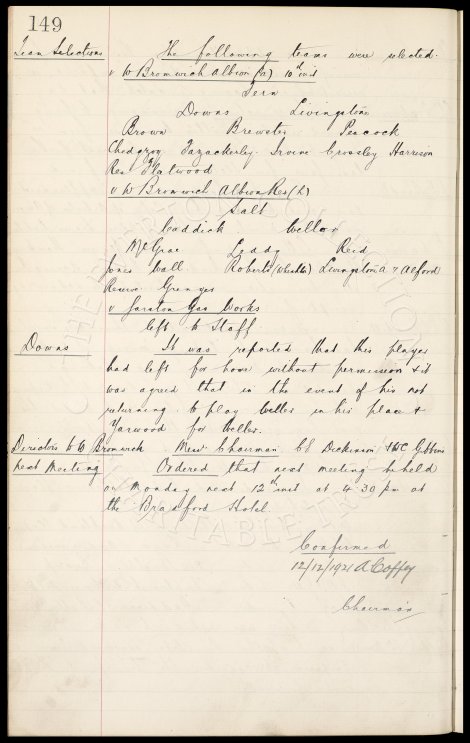 149
Team Selections The following teams were selected.
v W Bromwich Albion (a) 10th inst
Fern
Downs Livingstone
Brown Brewster Peacock
Chedgzoy Fazackerley Irvine Crossley Harrison
Res Flatwood
v W Bromwich Albion Res (h)
Salt
Caddick Weller
McGrae Leddy Reid
Jones Wall Roberts Livingstone a & Alford
Reserve Grenyer
v Garston Gas Works
Left to Staff
Downs It was reported that this player
had left for home without permission & it
was agreed that in the event of his not
returning to play Weller in his place &
Yarwood for Weller.
Directors to W Bromwich Messrs Chairman CS Dickinson & WC Gibbins
next Meeting Ordered that next meeting be held
on Monday next 12th inst at 4.30 pm at
the Bradford Hotel
Confirmed
12/12/1921 A Coffey
Chairman
THE EVERTON COLLECTION
CHARITABLE TRUST